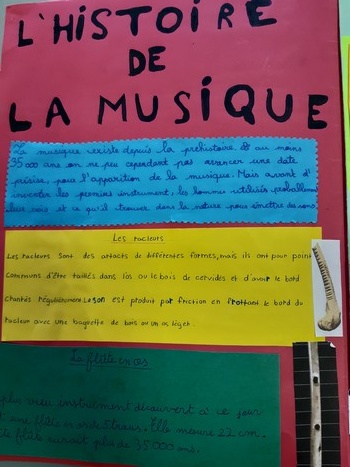 L'HISTOIRE
DE
LA MUSIQUE
La musique existe depuis la préhistoire. Il au moins
35 000 ans on ne peu cependant pas avancer une date
précise, pour l'apparition de la musique. Mais avant d'
inventer les premiers instrument, les hommes utilisés probablement
leur voix et ce qu'il trouver dans la nature pour émettre des sons.
Les racleurs
Les racleurs sont des artacts de différentes formes, mais ils ont pour point
communs d'être taillés dans l'os ou le bois de cervidés et d'avoir le bord
chantés régulièrement. Le son est produit par friction en frottant le bord du
racleur avec une baguette de bois ou un os biget.
La flûte en os
plus vieu instrument découvert à ce jour
d'une flûte en
Elle mesure 22 cm.
te flûte aurait plus de 35 000 ans.